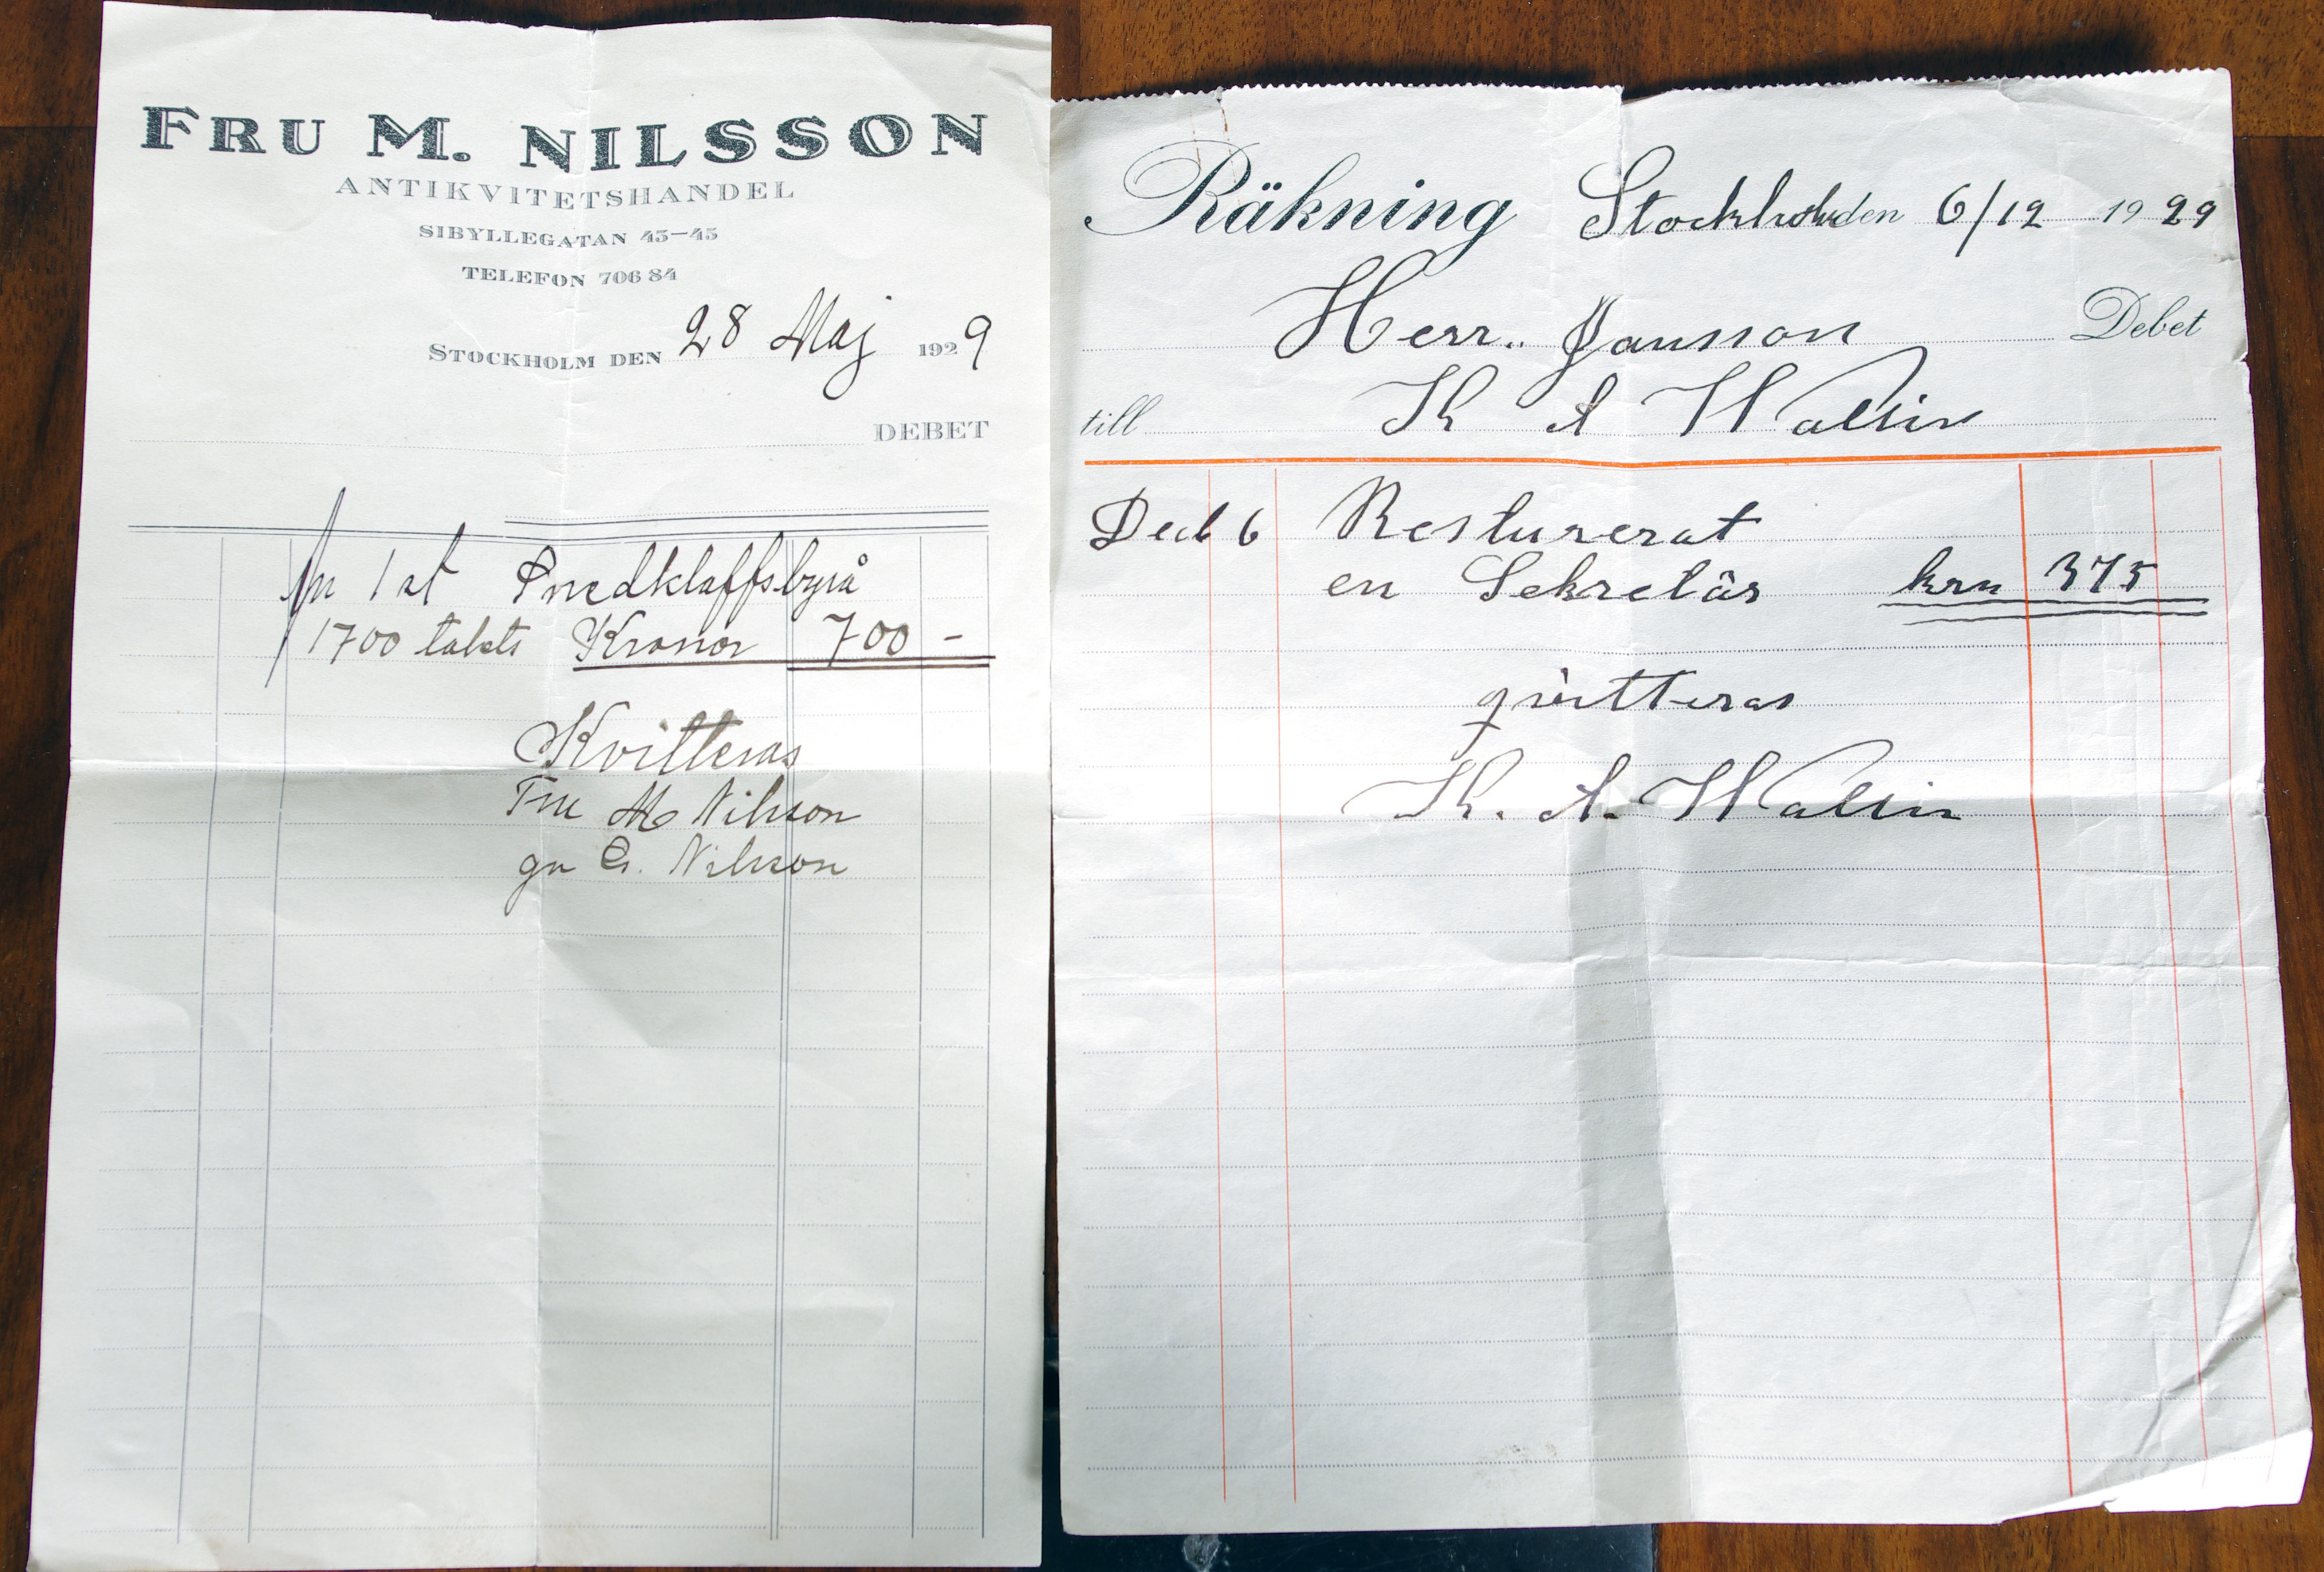 FRU M. NILSSON
ANTIKVITETSHANDEL
SIBYLLEGATAN 43—45
TELEFON 706 84
STOCKHOLM DEN 28 Maj 1929
DEBET
1 st Snedklaffsbyrå
1700 talets Kronor 700 -
Kvitteras
Fru M Nilsson
gn G. Nilsson
Räkning Stockholm den 6/12 1929
Herr.. Jansson Debet
till K A Wallin
Dec 6 Resturerat
en Sekretär krn 375
qvitteras
K. A. Wallin